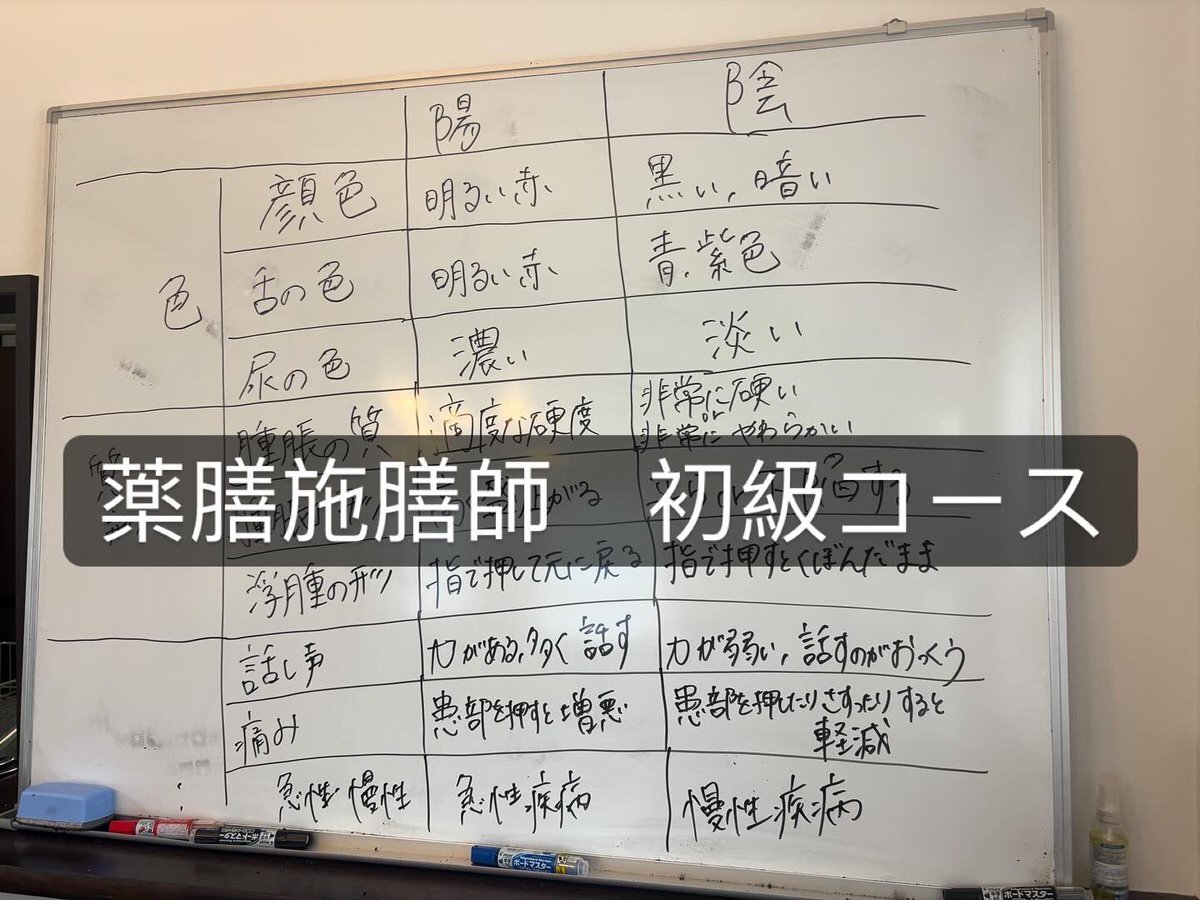 陽 陰
顔色 明るい赤 黒い,暗い
色 舌の色 明るい赤 青.紫色
尿の色 濃い 淡い
腫脹の質 適度な硬度 非常に硬い
or
非常に やわらかい
薬膳施膳師 初級コース
浮腫の形 指で押して元に戻る 指で押すとくぼんだまま
話し声 力がある,多く話す 力が弱い,話すのがおっくう
痛み 患部を押すと増悪 患部を押したりさすったりすると
軽減
急性 慢性 急性疾病 慢性疾病
ボードマスター
ボードマスター
ボードマスター